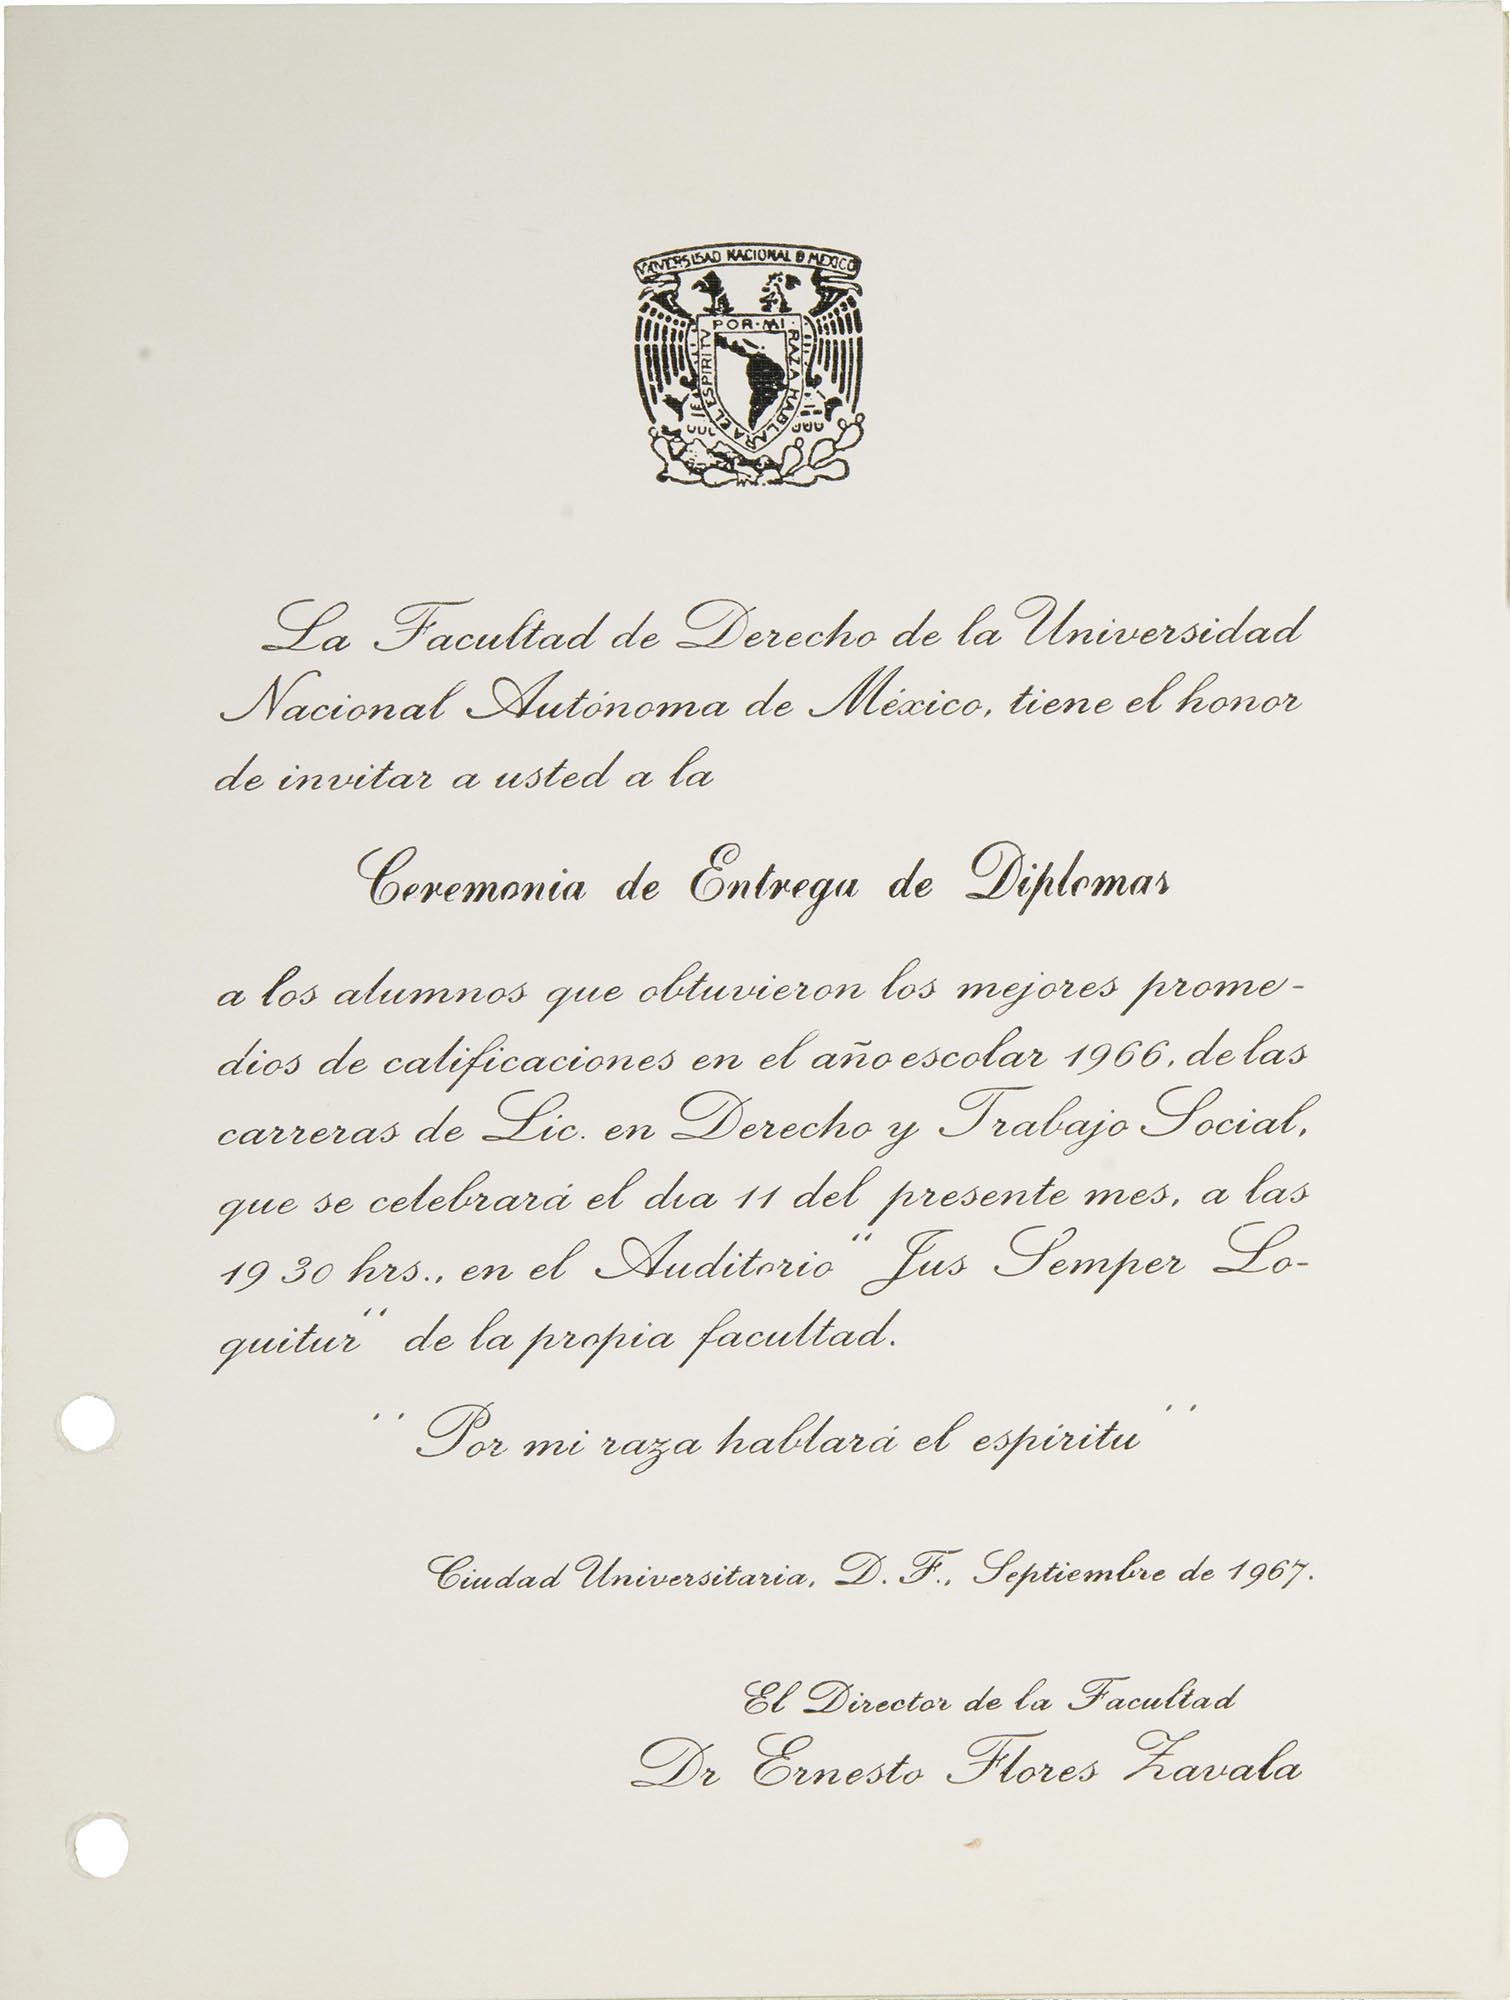 VNIVERSIDAD NACIONAL D MEXICO
POR·MI·RAZA HABLARA EL ESPIRITV
La Facultad de Derecho de la Universidad
Nacional Autónoma de México, tiene el honor
de invitar a usted a la
Ceremonia de Entrega de Diplomas
a los alumnos que obtuvieron los mejores prome-
dios de calificaciones en el año escolar 1966, de las
carreras de Lic. en Derecho y Trabajo Social,
que se celebrará el dia 11 del presente mes, a las
19 30 hrs., en el Auditorio "Jus Semper Lo-
quitur" de la propia facultad.
"Por mi raza hablará el espíritu"
Ciudad Universitaria, D. F., Septiembre de 1967.
El Director de la Facultad
Dr Ernesto Flores Zavala